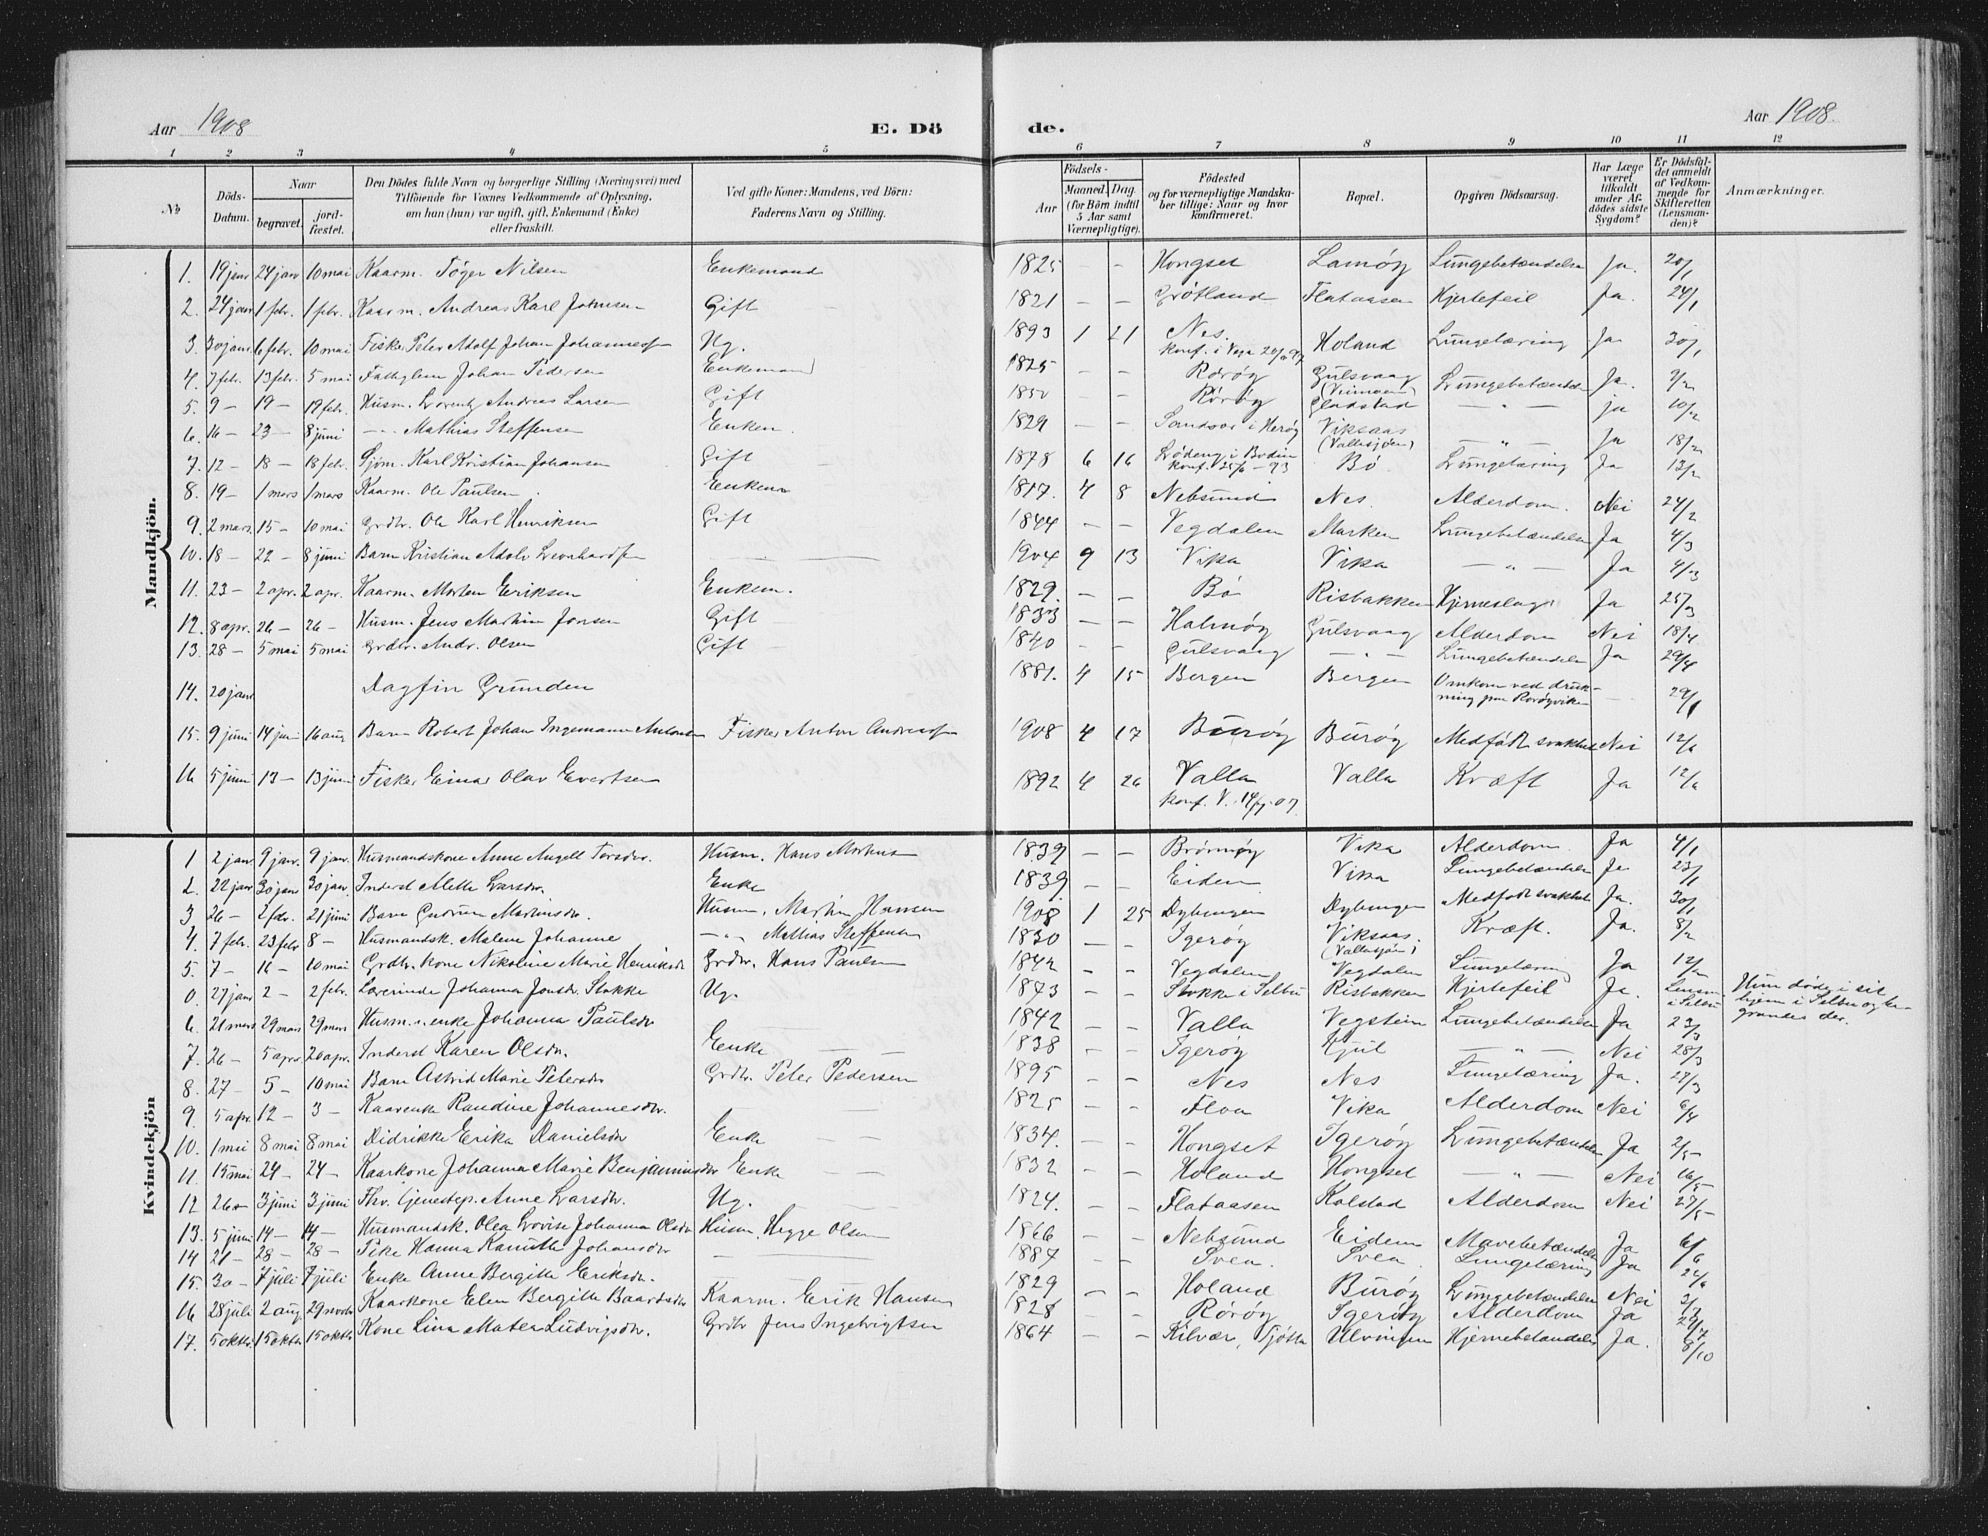 Aar 1908
E. Dö
de.
Aar 1908.
1 2 3 4 5 6 7 8 9 10 11 12
№
Döds-Datum.
Naar
begravet.
jord-fæstet.
Den Dödes fulde Navn og borgerlige Stilling (Næringsvei) med
Tilföiende for Voxnes Vedkommende af Oplysning,
om han (hun) var ugift, gift, Enkemand (Enke)
eller fraskilt.
Ved gifte Koner: Mandens, ved Börn:
Faderens Navn og Stilling.
Födsels-
Aar
Maaned. Dag.
(for Börn indtil
5 Aar samt
Værnepligtige).
Födested
og for værnepligtige Mandska-
ber tillige: Naar og hvor
konfirmeret.
Bopæl.
Opgiven Dödsaarsag.
Har Læge
været
tilkaldt
under Af-
dödes sidste
Sygdom?
Er Dödsfal-
det anmeldt
af Vedkom-
mende for
Skifteretten
(Lensman-
den)?
Anmærkninger.
Mandkjön.
1. 19 janr 24 janr 10 mai Kaarm. Töger Nilsen Enkemand 1825 – – Hongset Lamöy Lungebetændelse Ja. 20/1
2. 24 janr 1 febr. 1 febr. Kaarm. Andreas Karl Johnsen Gift 1821 – – Grötland Flataasen Hjertefeil Ja. 24/1
3. 30 janr 6 febr. 10 mai Fisker Peter Adolf Johan Johannessen Ug. 1893 1 21 Nes. Holand Lungetæring Ja 30/1
konf. i Vega
4. 7 febr. 13 febr. 5 mai Johan Pedersen Enkemand 1825 – – Röröy Gulsvaag Lungebetændelse Ja.
5. 9 – 19 – 19 febr. Husm. Lorentz Andreas Larsen Gift 1850 – – Röröy Gladstad – " – ja 10/2
6. 16 – 23 – 8 juni – " – Mathias Steffensen Enkem. 1829 – – Sandvær i Heröy Viksaas – " – Ja 18/2
(Vallasjöen)
7. 12 – 18 – 18 febr. Sjöm. Karl Kristian Johansen Gift 1878 6 16 Lödeng i Bodin Bö Lungetæring Ja 13/2
konf. 25/6 – 93
8. 19 – 1 mars 1 mars Kaarm. Ole Paulsen Enkem 1817. 4 8 Nebsund Nes Alderdom. Nei 24/2
9. 2 mars 15 – 10 mai Grdbr. Ole Karl Henriksen Gift 1844 – – Vegdalen Marken Lungebetændelse Ja 4/3
10. 18 – 22 – 8 juni Barn Kristian Adolv Leonhardsen 1904 9 13 Vika Vika – " – Ja
11. 23 – 2 apr. 2 apr. Kaarm. Morten Eriksen Enkem. 1829. – – Bö Risbakken Hjerneslag Ja 25/3
12. 8 apr. 26 – 26 – Husm. Jens Martin Jonsen Gift 1833 – – Halmöy Gulsvaag Alderdom Nei 18/4
13. 28 – 5 mai 5 mai Grdbr. Andr. Olsen Gift 1840 – – Gulsvaag – " – Lungebetændelse Ja 29/4
14. 20 janr Dagfin Grunden 1881. 4 15 Bergen Bergen Omkom ved druk-
ning paa Rörövviken – 29/1
15. 9 juni 14 juni 16 aug Barn Robert Johan Ingemann Antonsen Fisker Anton Andreassen 1908 4 17 Buröy Buröy Medfödt svakhet Nei 12/6
16 5 juni 13 – 13 juni Fisker Einar Olav Evertsen 1892 4 26 Valla Valla Kræft Ja 12/6
Kvindekjön
1 2 janr 9 janr. 9 janr. Husmandskone Anne Angell Torsdtr. Husm. Hans Morkus 1839 – – Brönnöy Vika Alderdom. Ja 4/1
2. 22 janr 30 janr 30 janr. Inderst Mette Larsdtr. Enke 1839. – – Eiden Vika Lungebetændelse Ja 23/1
3 26 – 2 febr. 21 juni Barn Gudrun Martinsdtr. Husm. Martin Hansen 1908 1 25 Dybingen Dybingen Medfödt svakhet Ja. 30/1
4. 7 febr. 23 febr 8 – Husmandsk. Malene Johanne – " – Mathias Steffensen 1830 – – Igeröy Viksaas Kræft. Ja. 8/2
(Vallasjöen)
5. 7 – 16 – 10 mai Grdbr. kone Nikoline Marie Henriksdtr Grdbr. Hans Paulsen 1842 – – Vegdalen Vegdalen Lungetæring Ja 12/2
0. 27 janr 2 – 2 febr. Lærerinde Johanna Jonsdtr. Stokke Ug. 1873 – – Stokke i Selbu Risbakken Hjertefeil Ja. Lensm. i Selbu Hun döde i sit
hjem i Selbu og be-
gravedes der.
6. 21 mars 29 mars 29 mars Husm.enke Johanna Paulsdtr 1842 – – Valla Vegstein Lungebetændelse Ja 23/3
7. 26 – 5 apr 20 apr. Inderst Karen Olsdtr. Enke 1838 – – Igeröy Kjul – " – Nei 28/3
8. 27 – 5 – 10 mai Barn Astrid Marie Petersdtr Grdbr. Peter Pedersen 1895 – – Nes Nes Lungetæring Ja. 28/3
9 5 apr 12 – 3 – Kaarenke Randine Johannesdtr. 1825 – – Floa Vika Alderdom Nei 6/4
10. 1 mai 8 mai 8 mai Didrikke Erika Danielsdtr Enke 1834. – – Hongset Igeröy Lungebetændelse Ja 2/5
11. 15 mai 24 – 24 – Kaarkone Johanna Marie Benjaminsdtr Enke 1832 – – Holand Hongset – " – Nei 16/5
12 26 – 3 juni 3 juni Fhv. tjenestep. Anne Larsdtr. Ug. 1824. – – Flataasen Kolstad Alderdom Nei 27/5
13. 5 juni 14 – 14 – Husmandsk. Olea Lovise Johanna Olsdtr Husm. Hegge Olsen 1866 – – Nebsund Eidem Mavebetændelse Ja 6/6
14 21 – 28 – 28 – Pike Hanna Kamilla Johansdtr 1887 – – Svea. Svea Lungetæring Ja
15. 30 – 7 juli 7 juli Enke Anne Bergitte Eriksdtr. 1829 – – Holand Buröy Lungebetændelse Nei
16 28 juli 2 aug. 29 novbr Kaarkone Elen Bergitte Baardsdtr Kaarm. Erik Hansen 1828 – – Röröy Igeröy Alderdom Ja 29/7
17. 5 oktbr. 15 oktbr 15 oktbr. Kone Lina Matea Ludvigsdtr. Grdbr Jens Ingebrigtsen 1864 – – Kilvær, Tjötta Ulvingen Hjernebetændelse Ja. 8/10